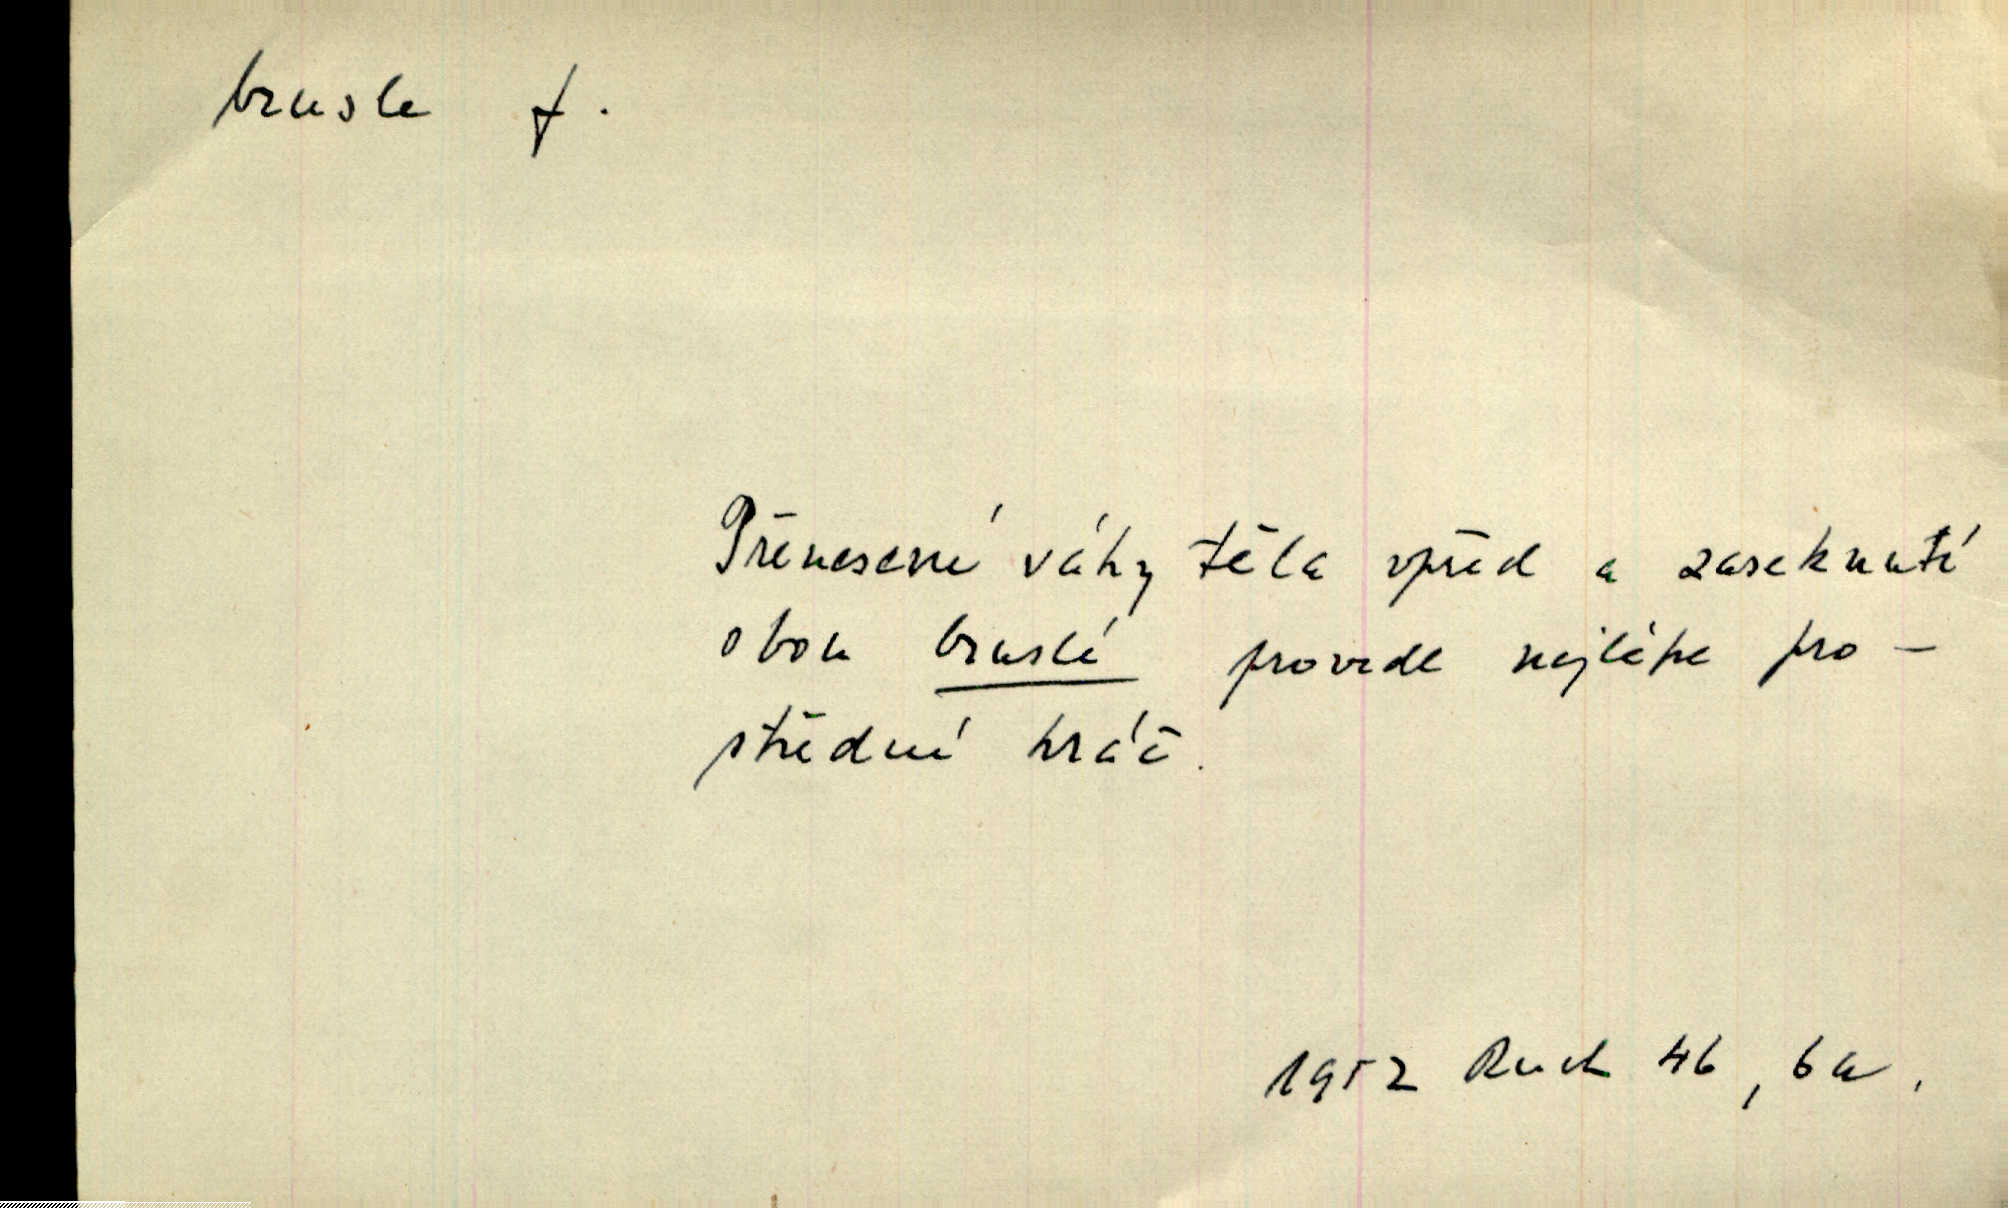 brusle f.
Přenesení váhy těla vpřed a zaseknutí
obou bruslí provede nejlépe pro-
střední hráč.
1952 Ruch 46, 6a.